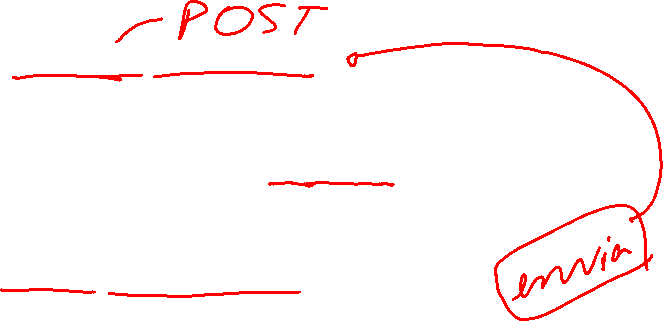 POST
envia